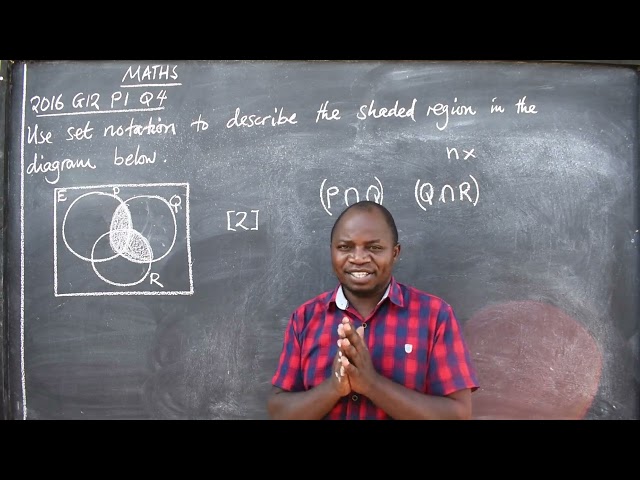 MATHS
2016 G12 P1 Q4
Use set notation to describe the shaded region in the
diagram below.
n x
E P Q
[2] (P ∩ Q) (Q ∩ R)
R